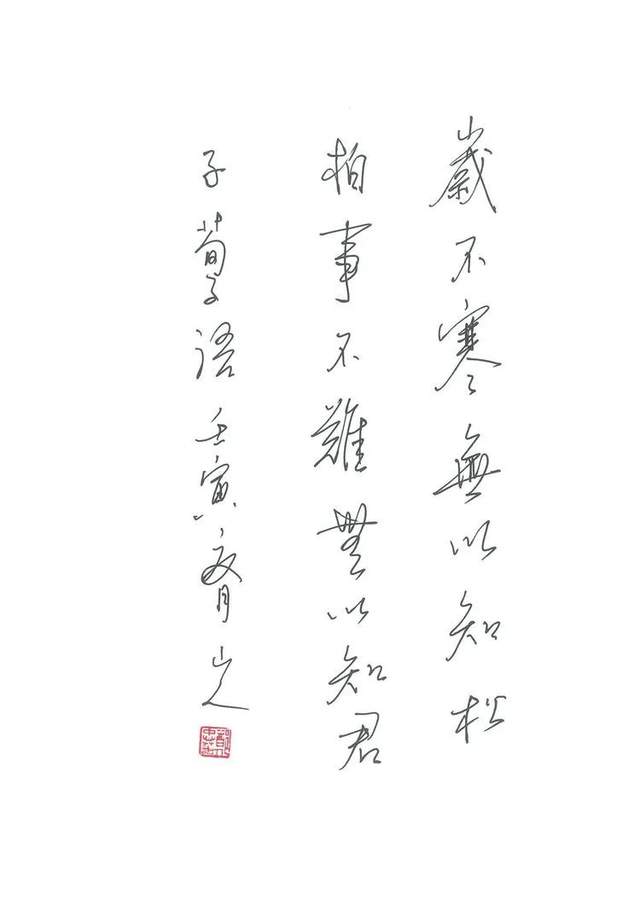 歲不寒無以知松
柏事不難無以知君
子荀子語壬寅山人